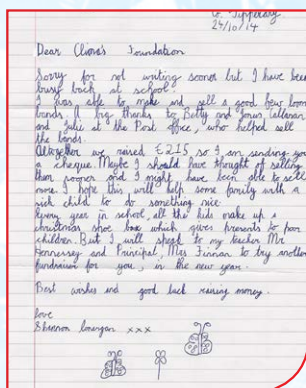 Co. Tipperary
24/10/14
Dear Cliona's Foundation
Sorry for not writing sooner but I have been
busy back at school.
I was able to make and sell a good few loom
bands. A big thanks to Betty and
and Julie at the Post office, who helped sell
the bands.
Altogether we raised €215 so I am sending you
a cheque. Maybe I should have thought of selling
them sooner and I might have been able to sell
more. I hope this will help some family with a
sick child to do something nice.
Every year in school, all the kids make up a
christmas shoe box which gives presents to poor
children. But I will speak to my teacher Mr
Hennessy and Principal, Mrs Finnan to try another
fundraiser for you, in the new year.
Best wishes and good luck raising money.
love
Shannon xxx